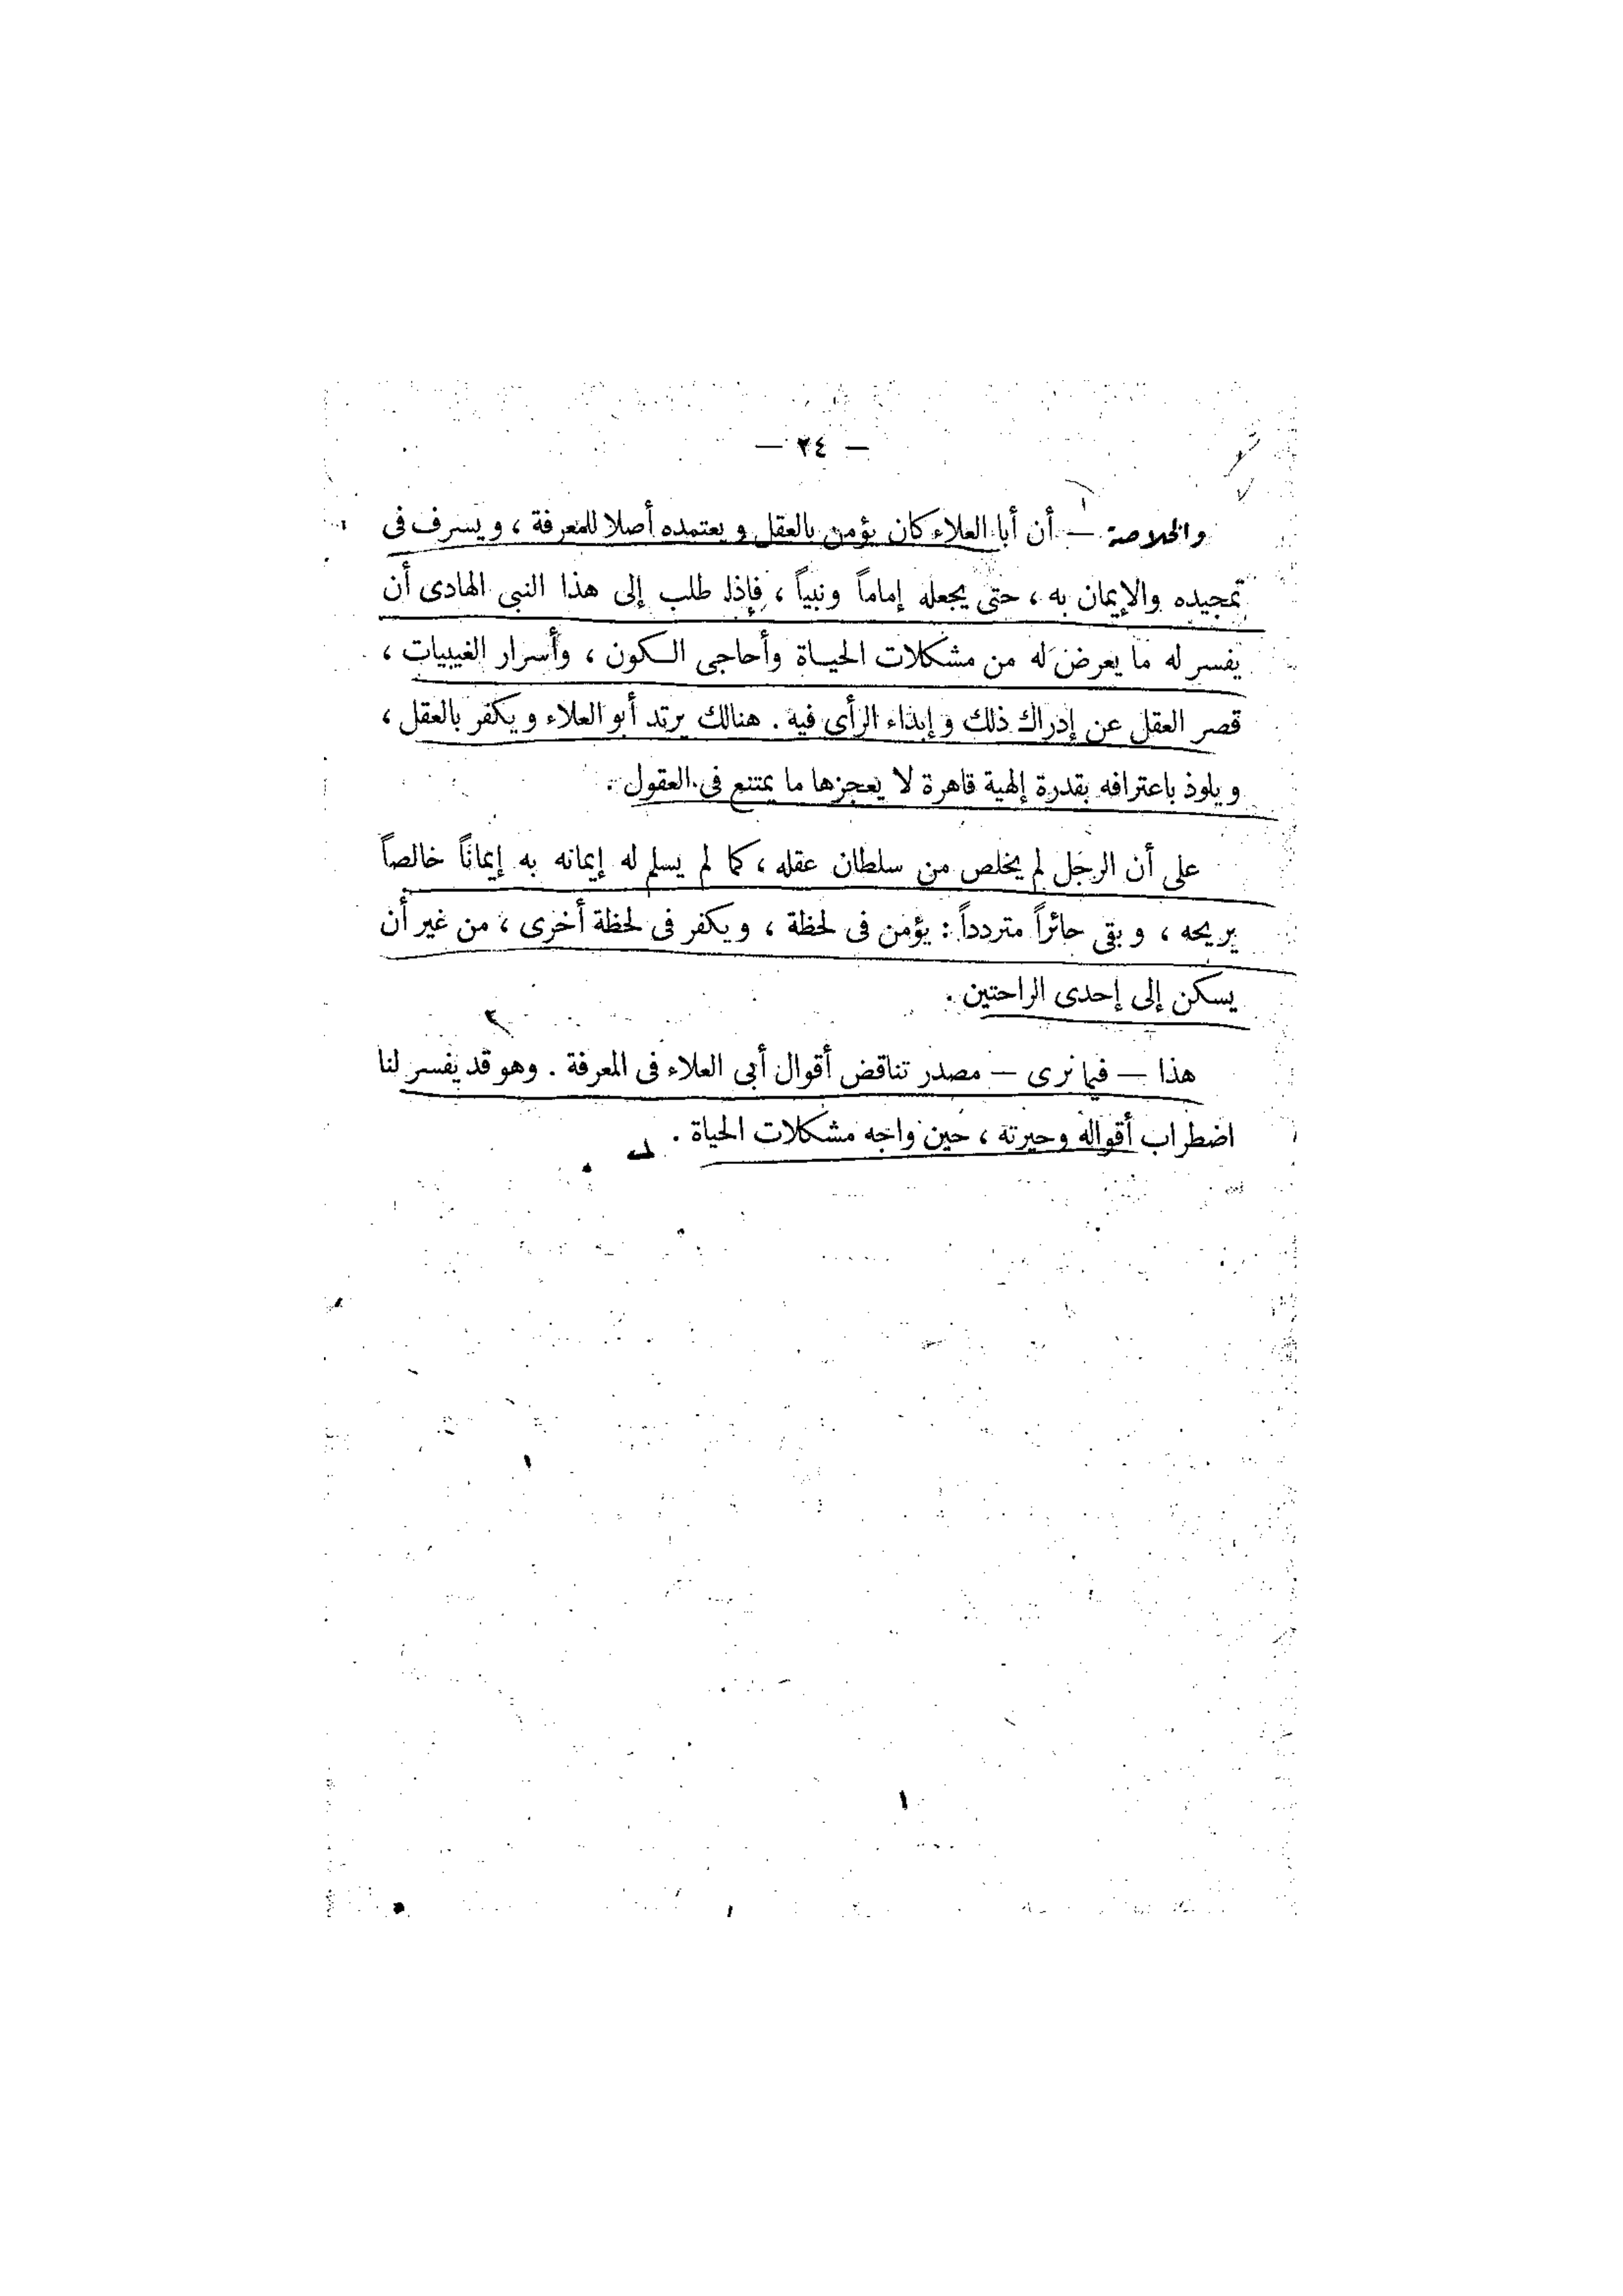 — ٢٤ —
والخلاصة — أن أبا العلاء كان يؤمن بالعقل ويعتمده أصلا للمعرفة ، ويسرف فى
تمجيده والإيمان به ، حتى يجعله إماماً ونبياً ، فإذا طلب إلى هذا النبى الهادى أن
يفسر له ما يعرض له من مشكلات الحياة وأحاجى الكون ، وأسرار الغيبيات ،
قصر العقل عن إدراك ذلك وإبداء الرأى فيه . هنالك يرتد أبو العلاء ويكفر بالعقل ،
ويلوذ باعترافه بقدرة إلهية قاهرة لا يعجزها ما يمتنع فى العقول .
على أن الرجل لم يخلص من سلطان عقله ، كما لم يسلم له إيمانه به إيماناً خالصاً
يريحه ، وبقى حائراً متردداً : يؤمن فى لحظة ، ويكفر فى لحظة أخرى ، من غير أن
يسكن إلى إحدى الراحتين .
هذا — فيما نرى — مصدر تناقض أقوال أبى العلاء فى المعرفة . وهو قد يفسر لنا
اضطراب أقواله وحيرته ، حين واجه مشكلات الحياة .